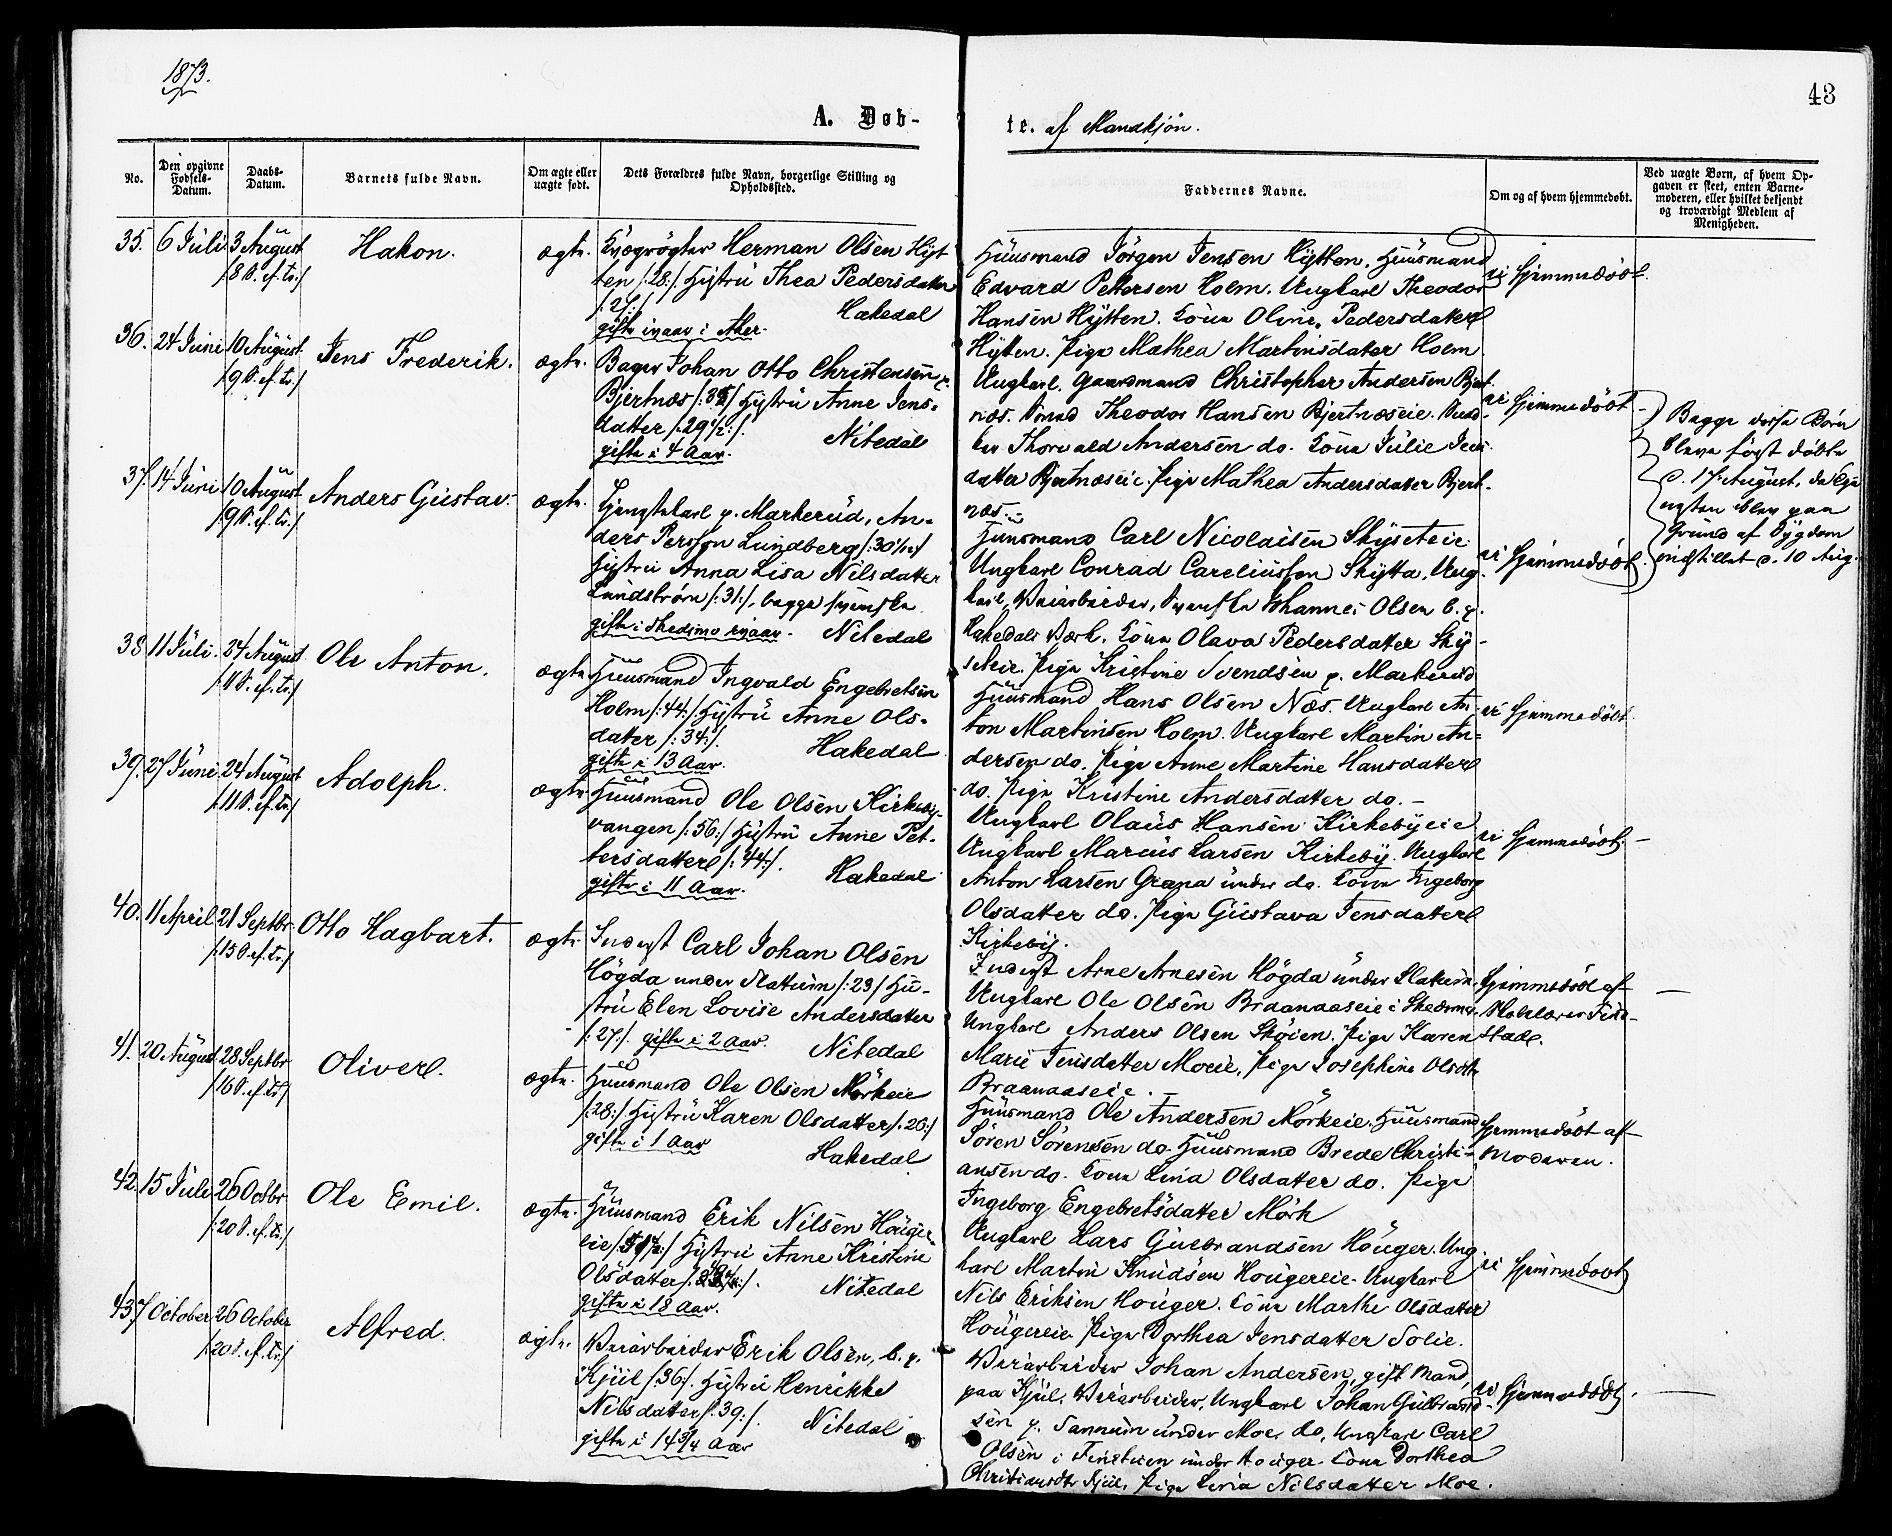 1873.
43
A. Døb-
te. af Mandkjön.
No.
Den opgivne
Fødsels-
Datum.
Daabs-
Datum.
Barnets fulde Navn.
Om ægte eller
uægte født.
Dets Forældres fulde Navn, borgerlige Stilling og
Opholdssted.
Faddernes Navne.
Om og af hvem hjemmedøbt.
Ved uægte Børn, af hvem Op-
gaven er skeet, enten Barne-
moderen, eller hvilket bekjendt
og troværdigt Medlem af
Menigheden.
35. 6 Juli 3 August
/8 S. ef. Tr:/
Hakon.
ægte.
Herman Olsen Hyt
ten /:28:/ Hustru Thea Pedersdatter
/:27:/ Hakedal
gifte i Aker.
Huusmand Jörgen Jensen Hytten. Huusmand
Edvard Pettersen Holm. Ungkarl Theodor
Hansen Hytten. Kone Oline Pedersdatter
Hytten. Pige Mathea Martinsdatter Holm
ei hjemmedöbt.
36. 24 Juni 10 August
/:9 S. ef. Tr:/
Jens Frederik.
ægte.
Bager Johan Otto Christensen
Bjertnæs Hustru Anne Jens-
datter /:29½:/. Nitedal
gifte i 4 Aar.
Ungkarl. Gaardmand Christopher Andersen Bjert-
næs. Theodor Hansen Bjertnæseie.
Thorvald Andersen do. Kone Julie Jens-
datter Bjertnæseie. Pige Mathea Andersdatter Bjert-
næs.
ei hjemmedöbt
Begge disse Börn
bleve först döbte
d. 17 August, da
blev paa
Grund af Sygdom
indstillet d. 10 Aug.
37. 14 Juni 10 August
/:9 S. ef. Tr:/
Anders Gustav.
ægte.
Tjenestekarl p. Markerud, An-
ders Persson Lundberg
Hustru Anna Lisa Nilsdatter
Lundström /:31:/, begge svenske
gifte i Skedsmo Nitedal
Huusmand Carl Nicolaisen
Ungkarl Conrad Careliusson Skytta. Ung-
karl, Johannes Olsen b. p.
Hakedals Værk. Kone Olava Pedersdatter
Pige Kristine Svendsen p. Markerud
ei hjemmedöbt
38 11 Juli. 24 August
/:11 S. ef. Tr:/
Ole Anton.
ægte
Huusmand Ingvald Engebretsen
Holm /:44:/ Hustru Anne Ols-
datter /:34:/. Hakedal
gifte i 13 Aar.
Huusmand Hans Olsen Næs. Ungkarl An-
ton Martinsen Holm. Ungkarl Martin An-
dersen do. Pige Anne Martine Hansdatter
do. Pige Kristine Andersdatter do.
ei hjemmedöbt.
39. 27 Juni 24 August
/:11 S. ef. Tr:/
Adolph.
ægte
Huusmand Ole Olsen Kirkeby-
vangen /:56:/ Hustru Anne Pet-
tersdatter /:44:/. Hakedal
gifte i 11 Aar.
Ungkarl Olaus Hansen Kirkebyeie
Ungkarl Marcus Larsen Kirkeby. Ungkarl
Anton Larsen Grana under do. Kone Ingeborg
Olsdatter do. Pige Gustava Jensdatter
Kirkeby.
ei hjemmedöbt.
40. 11 April 21 Septbr
/:15 S. ef. Tr:/
Otto Hagbart.
ægte
Inderst Carl Johan Olsen
Högda under Slattum /:23:/ Hu-
stru Elen Lovise Andersdatter
/:27/. gifte i 2 Aar. Nitedal
Inderst Arne Arnesen Högda under Slattum.
Ungkarl Ole Olsen Braanaaseie i Skedsmo.
Ungkarl Anders Olsen Skøien. Pige Karen
Marie Jensdatter Moeie, Pige Josephine Olsdtr
Braanaaseie.
hjemmedöbt af
41. 20 August 28 Septbr
/:16 S. ef. Tr:/
Oliver.
ægte.
Huusmand Ole Olsen Mörkeie
/:28:/ Hustru Karen Olsdatter /:26:/
gifte i 1 Aar Hakedal
Huusmand Ole Andersen Mörkeie. Huusmand
Sören Sörensen do. Huusmand Brede Christi-
ansen do. Kone Lina Olsdatter do. Pige
Ingeborg Engebretsdatter Mörk
hjemmedöbt af
Moderen.
42. 15 Juli 26 Octbr
/:20 S. ef. Tr:/
Ole Emil.
ægte.
Huusmand Erik Nilsen Houger-
eie Hustru Anne Kristine
Olsdatter Nitedal
gifte i 18 Aar.
Ungkarl Lars Gulbrandsen Houger. Ung-
karl Martin Knudsen Hougereie. Ungkarl
Nils Eriksen Houger. Kone Marthe Olsdatter
Hougereie. Pige Dorthea Jensdatter Solie.
ei hjemmedöbt
43. 7 October 26 October
/:20 S. ef. Tr:/
Alfred.
ægte.
Veiarbeider Erik Olsen, b. p.
Kjul /:36:/. Hustru Henrikke
Nilsdatter /:39:/. Nitedal
gifte i 14¾ Aar
Veiarbeider Johan Andersen, gift Mand,
paa Kjul, Veiarbeider, Ungkarl Johan Gulbrand-
sen p. Sannum under Moe, do, Ungkarl Carl
Olsen i Finstuen under Houger. Kone Dorthea
Christiansdtr Kjul. Pige Lina Nilsdatter Moe.
ei hjemmedöbt